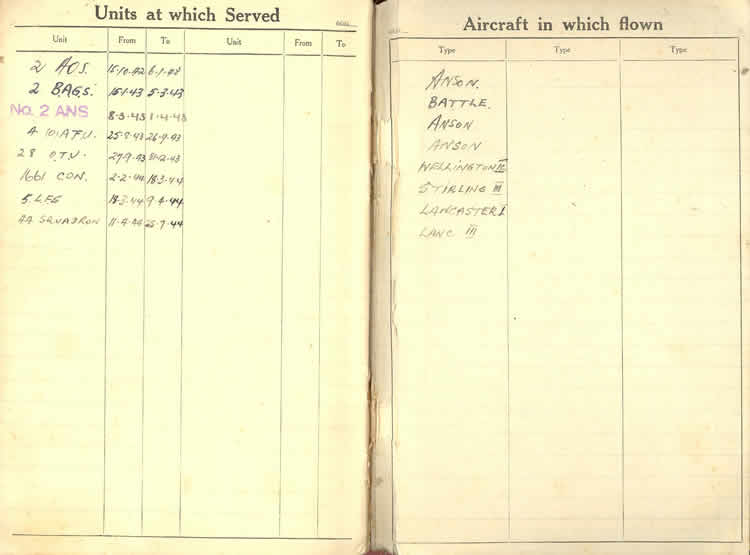 Units at which Served
Unit From To Unit From To
2 AOS. 15·10·42 6·1·43
2 BAGS. 15·1·43 5·3·43
No. 2 ANS 8-3-43 1-4-43
4 (O) A.F.U. 25-8-43 26-9-43
28 O.T.U. 27-9-43
1661 CON. 2-2-44 18-3-44
5 LFS 18-3-44 9-4-44
44 SQUADRON 11-4-44 25-7-44
Aircraft in which flown
Type Type Type
ANSON.
BATTLE.
ANSON
ANSON
WELLINGTON
STIRLING III
LANCASTER I
LANC III